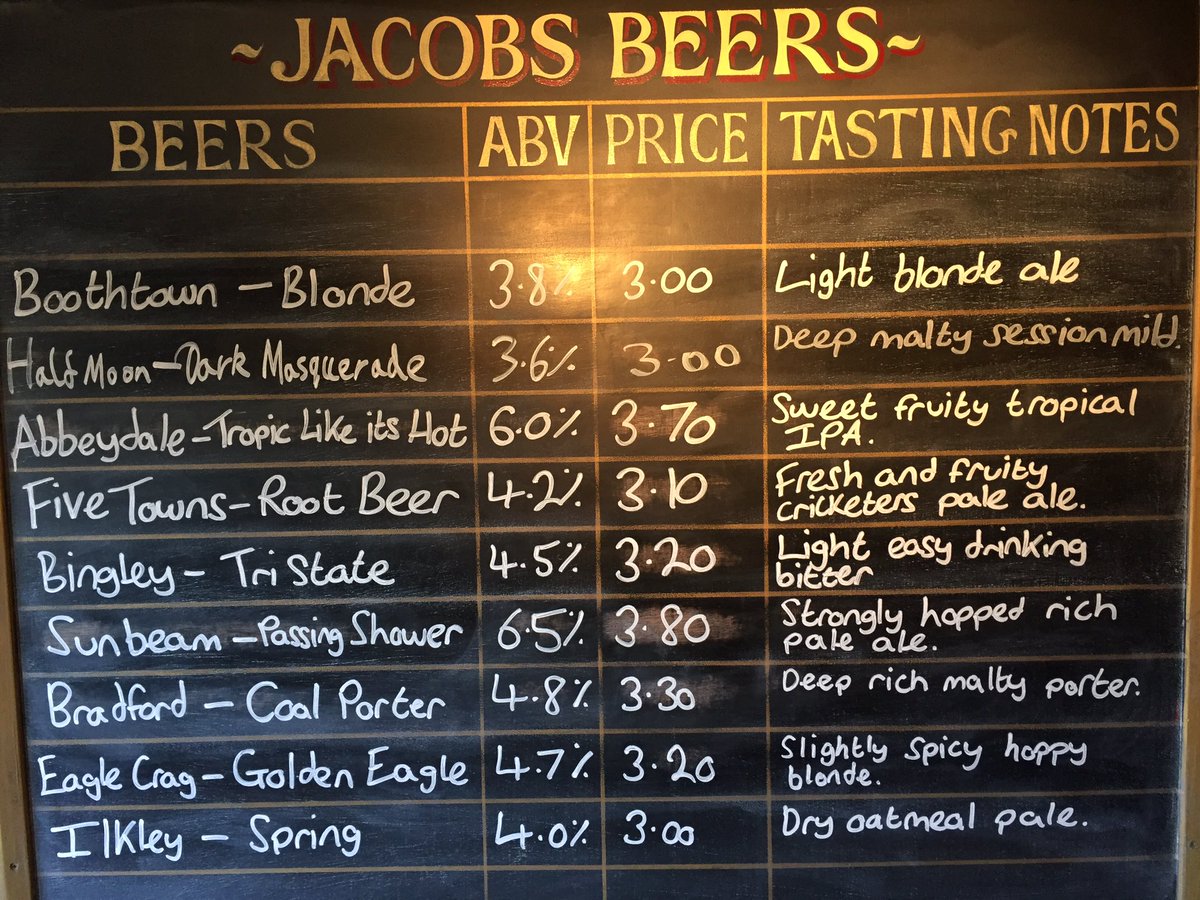 ~JACOBS BEERS~
BEERS ABV PRICE TASTING NOTES
Boothtown - Blonde 3.8% 3.00 Light blonde ale
Half Moon - Dark Masquerade 3.6% 3.00 Deep malty session mild.
Abbeydale - Tropic Like its Hot 6.0% 3.70 Sweet fruity tropical
IPA.
Five Towns - Root Beer 4.2% 3.10 Fresh and fruity
cricketers pale ale.
Bingley - Tri State 4.5% 3.20 Light easy drinking
bitter
Sunbeam - Passing Shower 6.5% 3.80 Strongly hopped rich
pale ale.
Bradford - Coal Porter 4.8% 3.30 Deep rich malty porter.
Eagle Crag - Golden Eagle 4.7% 3.20 Slightly spicy hoppy
blonde.
Ilkley - Spring 4.0% 3.00 Dry oatmeal pale.